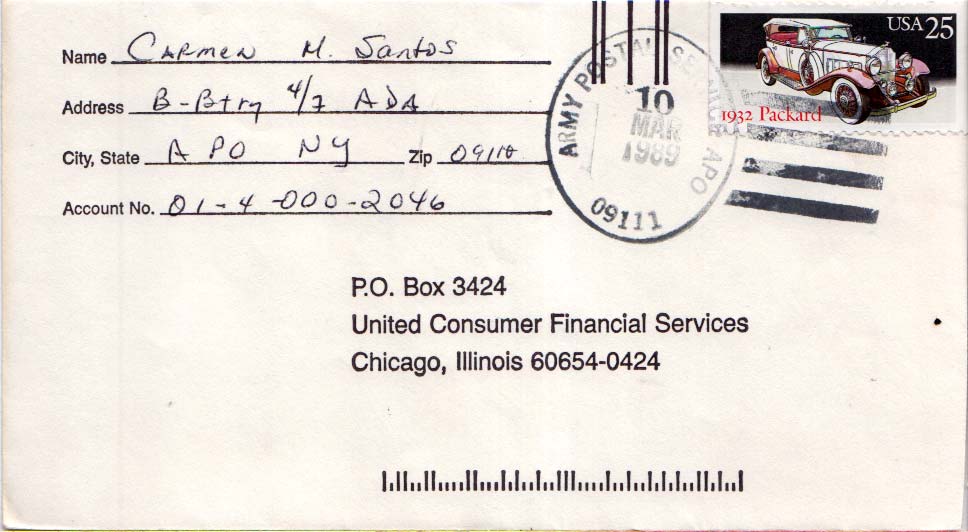 Name Carmen M. Santos
Address B-Btry 4/7 ADA
City, State APO NY Zip
Account No. 01-4-000-2046
ARMY POSTAL SERVICE APO
10
MAR
1989
09111
USA 25
1932 Packard
P.O. Box 3424
United Consumer Financial Services
Chicago, Illinois 60654-0424